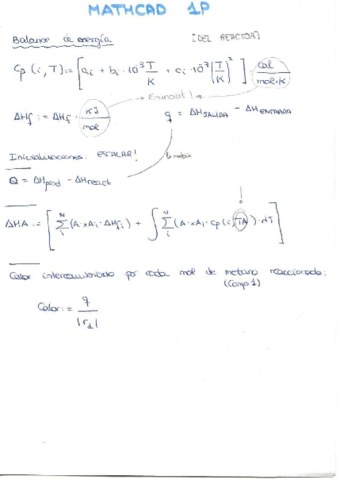 MATHCAD 1P
Balance de energía [DEL REACTOR]
Cp (i, T) := [ai + bi · 10³ T/K + ci · 10⁷ (T/K)²] cal/mol·K
Enunciat!
ΔHf := ΔHf · KJ/mol q = ΔH SALIDA - ΔH ENTRADA
Inicialitzacions: ESCALAR!
Q = ΔHprod - ΔHreact
!
ΔHA := [ Σ (A · xAi · ΔHfi) + ∫ Σ (A · xAi · cp(i, TA)) · dT ]
Calor intercanviado por cada mol de metano reaccionado:
(Comp 1)
Calor := q / |r1|